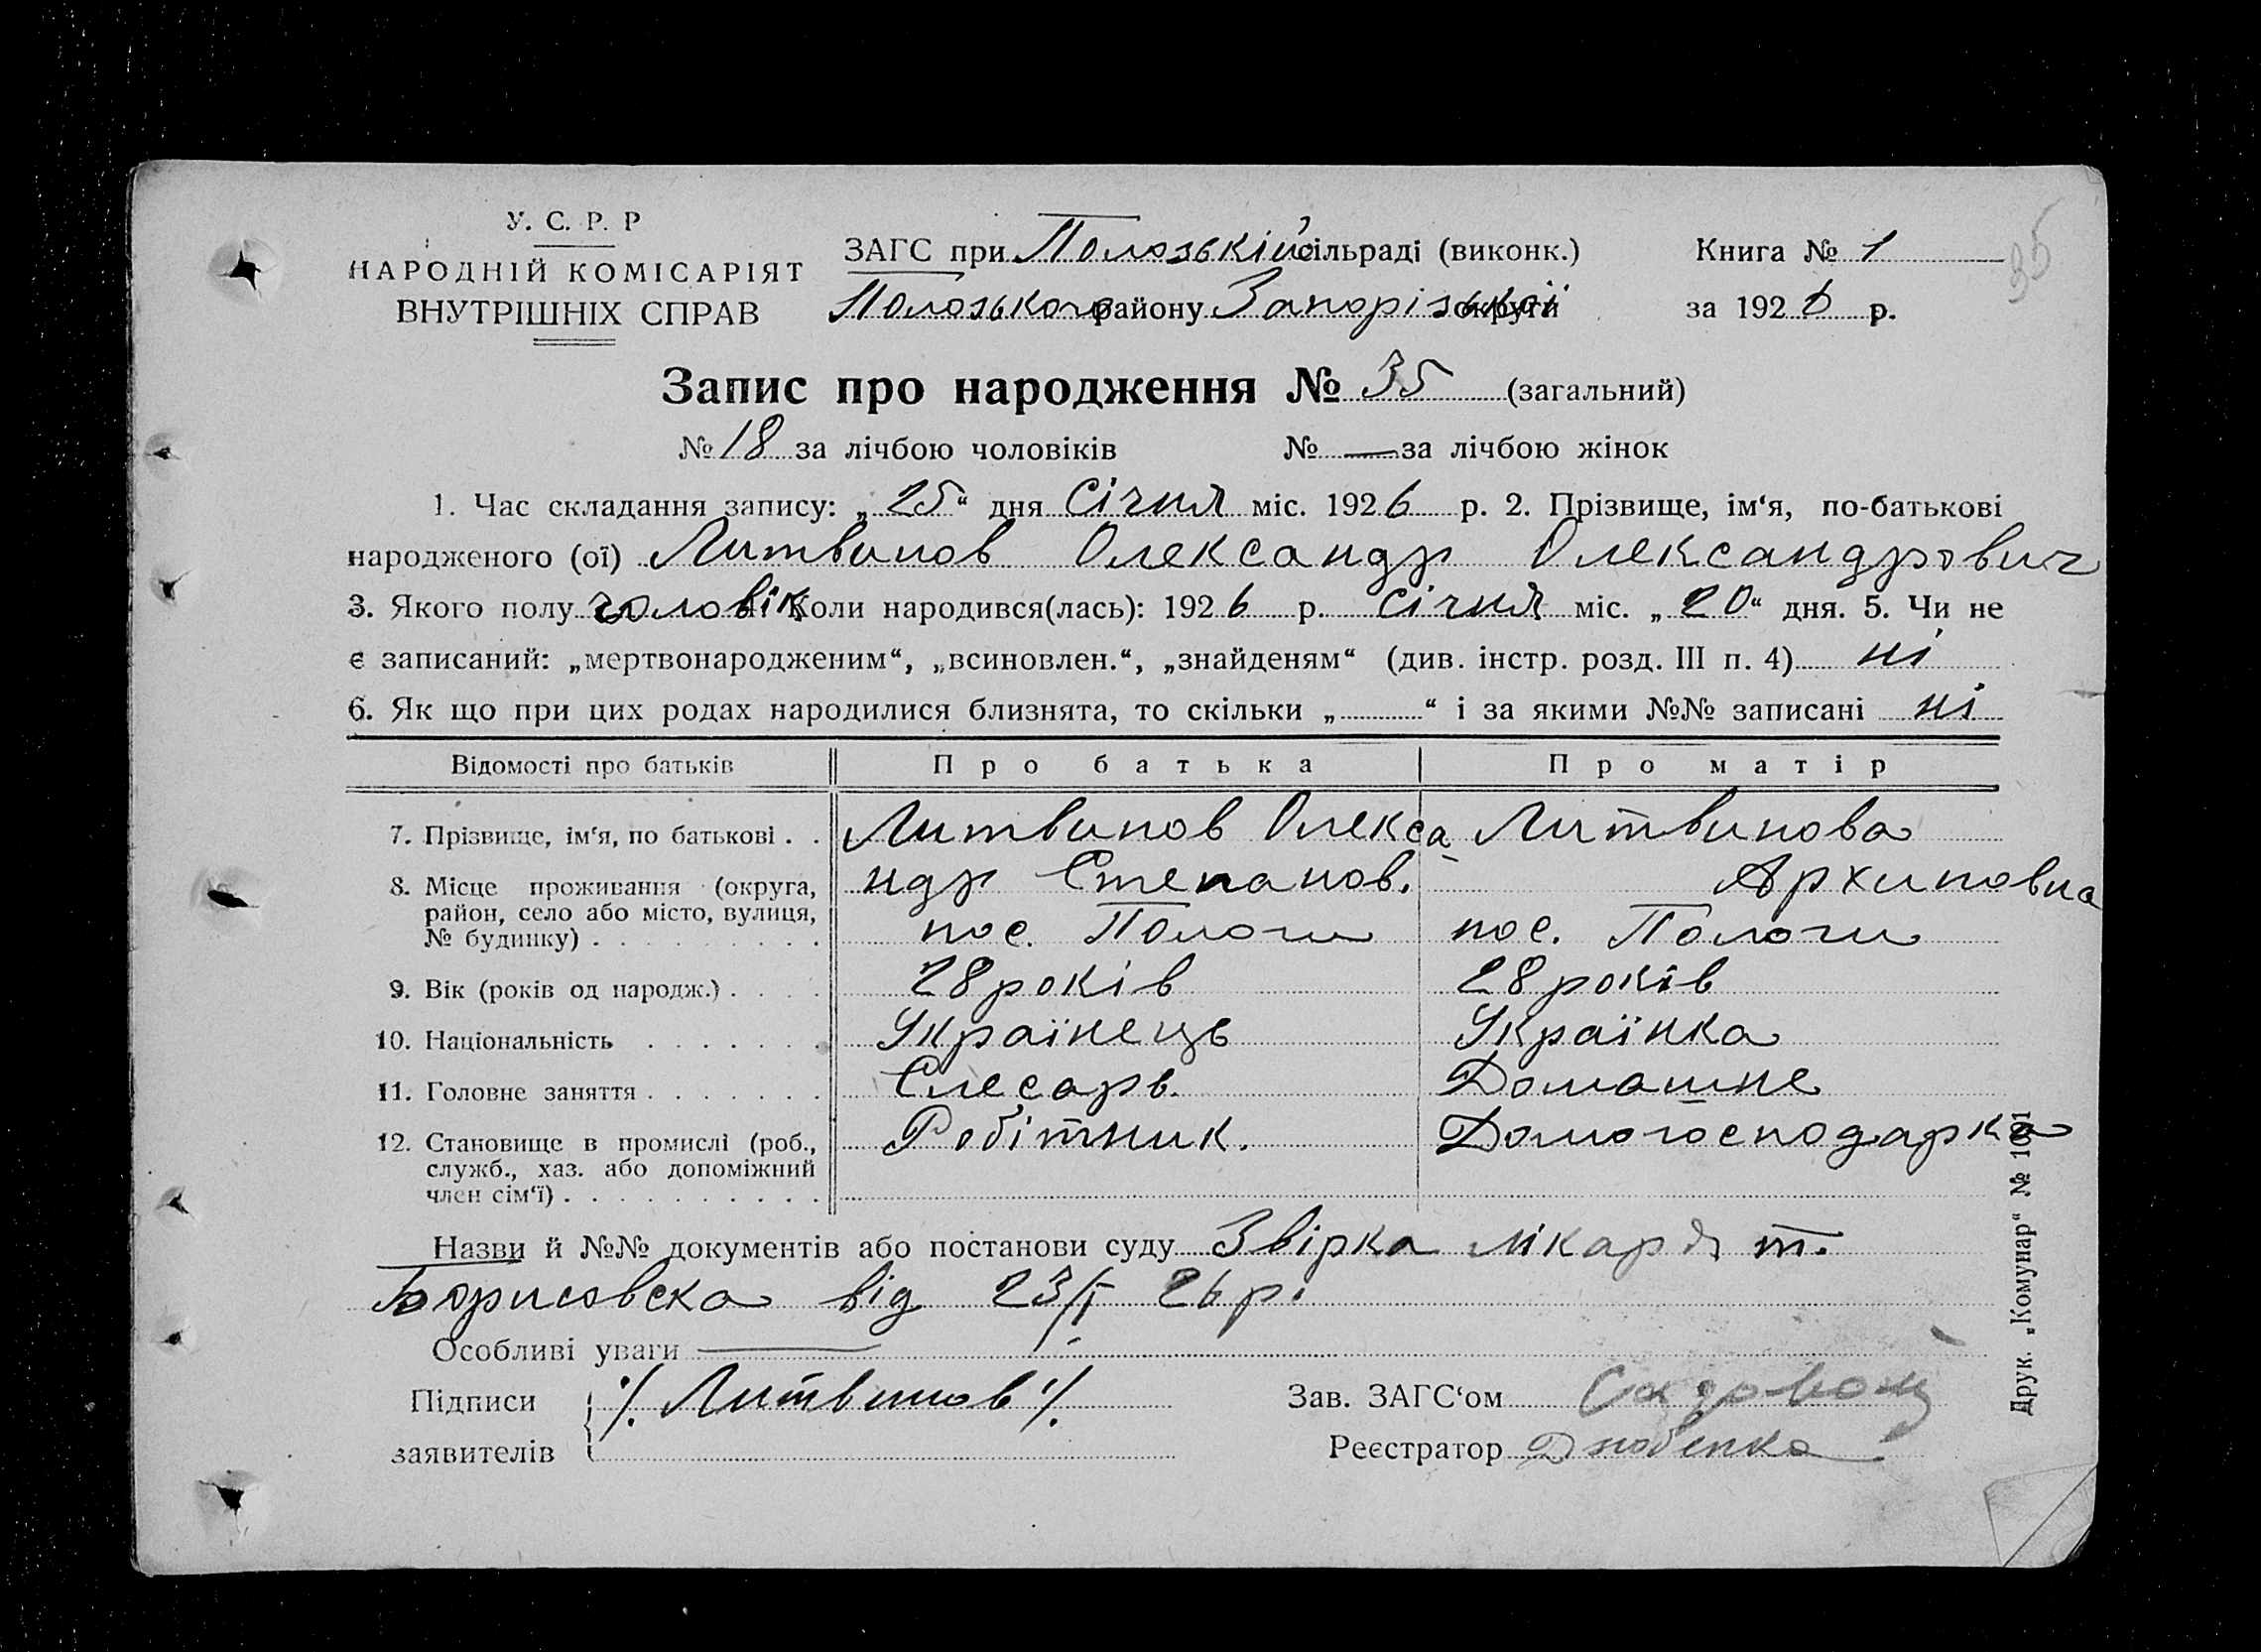 35
У. С. Р. Р
НАРОДНІЙ КОМІСАРІЯТ
ВНУТРІШНІХ СПРАВ
ЗАГС при Полозькій сільраді (виконк.)
Полозького району Запорізької округи
Книга № 1
за 1926 р.
Запис про народження № 35 (загальний)
№ 18 за лічбою чоловіків № — за лічбою жінок
1. Час складання запису: „25“ дня Січня міс. 1926 р. 2. Прізвище, ім‘я, по-батькові
народженого (ої) Литвинов Олександр Олександрович
3. Якого полу чоловік Коли народився(лась): 1926 р. січня міс. „20“ дня. 5. Чи не
є записаний: „мертвонародженим“, „всиновлен.“, „знайденям“ (див. інстр. розд. III п. 4) ні
6. Як що при цих родах народилися близнята, то скільки „ “ і за якими №№ записані ні
Відомості про батьків Про батька Про матір
7. Прізвище, ім‘я, по батькові . . Литвинов Олекса Литвинова
ндр Степанов. Архиповна
8. Місце проживання (округа,
район, село або місто, вулиця,
№ будинку) . . . . . . . . . пос. Пологи пос. Пологи
9. Вік (років од народж.) . . . . 28 років 28 років
10. Національність . . . . . . . Українець Українка
11. Головне заняття . . . . . . . Слесарь. Домашне
12. Становище в промислі (роб., Робітник. Домогосподарка
служб., хаз. або допоміжний
член сім‘ї) . . . . . . . . . .
Назви й №№ документів або постанови суду Звірка лікаря т.
Борисовска від 23/I 26 р.
Особливі уваги —
Підписи ./. Литвинов ./.
заявителів
Зав. ЗАГС‘ом
Реєстратор
Друк. „Комунар“ № 1001